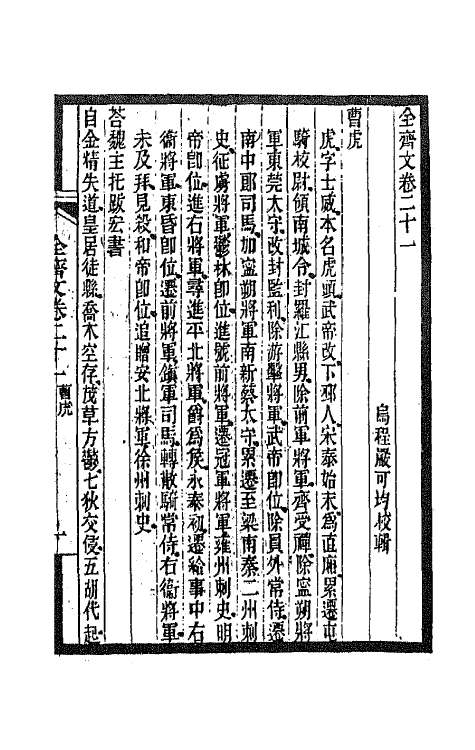 全齊文卷二十一
烏程嚴可均校輯
曹虎
虎字士威本名虎頭武帝改下邳人宋泰始末爲直廂累遷屯
騎校尉領南城令封羅江縣男除前軍將軍齊受禪除寧朔將
軍東莞太守改封監利除游擊將軍武帝卽位除員外常侍遷
南中郎司馬加寧朔將軍南新蔡太守累遷至梁南秦二州刺
史征虜將軍鬱林卽位進號前將軍遷冠軍將軍雍州刺史明
帝卽位進右將軍尋進平北將軍爵爲侯永泰初遷給事中右
衞將軍東昏卽位遷前將軍鎭軍司馬轉散騎常侍右衞將軍
未及拜見殺和帝卽位追贈安北將軍徐州刺史
荅魏主托跋宏書
自金精失道皇居徙縣喬木空存茂草方鬱七狄交侵五胡代起
全齊文卷二十一 曹虎 一